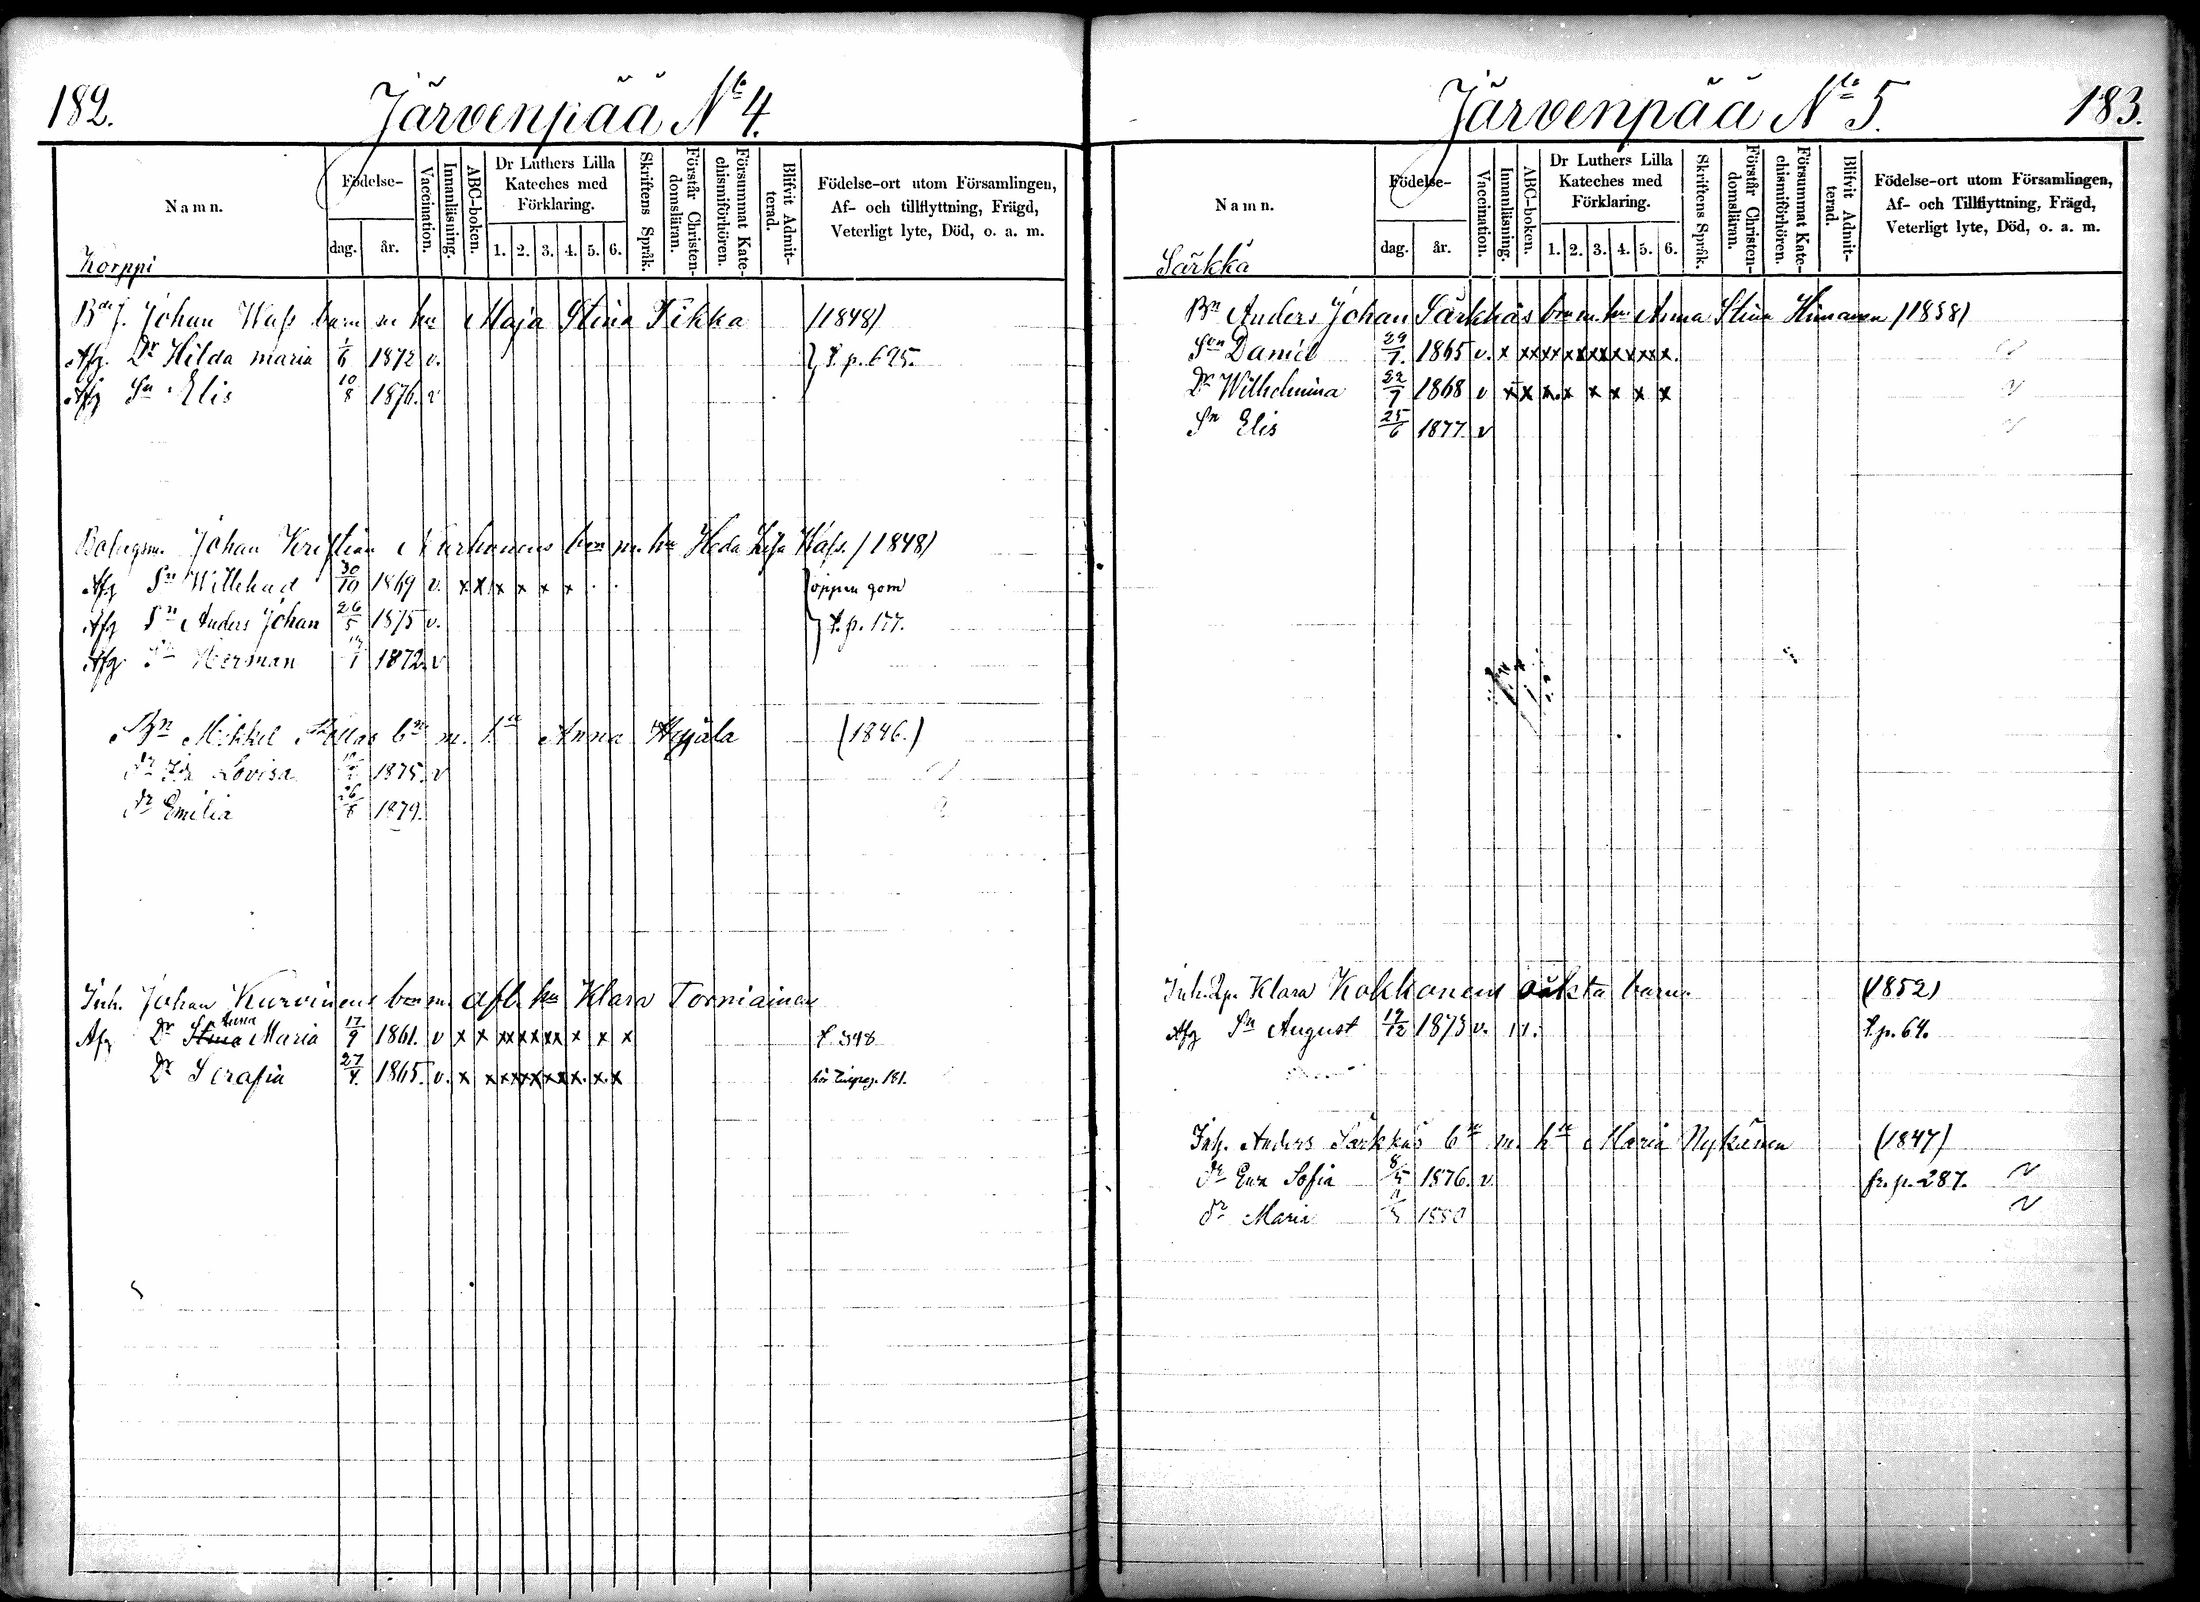 182.
Järvenpää No 4.
Namn.
Födelse-
dag.
år.
Vaccination.
Innanläsning.
ABC-boken.
Dr Luthers Lilla
Kateches med
Förklaring.
1. 2. 3. 4. 5. 6.
Skriftens Språk.
Förstår Christen-
domsläran.
Försummat Kate-
chismiförhören.
Blifvit Admit-
terad.
Födelse-ort utom Församlingen,
Af- och tillflyttning, Frägd,
Veterligt lyte, Död, o. a. m.
Korppi
Johan Wass barn m hu Maja Stina Pikka (1848)
Afg. Dr Hilda Maria 1/6 1872 v. } t. p. 625.
Afg Sn Elis 10/8 1876. v
Bolagsm. Johan Kristian Nurhonens brn m. hu Heda Lisa Wass. (1848)
Afg Sn Willehad 30/10 1869 v. x x x x x x . . öppen gom
Afg Sn Anders Johan 26/5 1875 v. } t. p. 177.
Afg Sn Herman 1872. v
Bn Mikkel bn m. hu Anna (1846.)
dr Ida Lovisa 1875. v
dr Emilia 26/8 1879.
Inh. Johan Kurvinens brn m. afl. hu Klara Torniainen
Anna
Afg Dr Stina Maria 17/9 1861. v x x xx x x xx x x x t. 348
Dr Serafia 27/4. 1865. v. x x x x x x x x. x. x 181.
Järvenpää No 5.
183.
Namn.
Födelse-
dag.
år.
Vaccination.
Innanläsning.
ABC-boken.
Dr Luthers Lilla
Kateches med
Förklaring.
1. 2. 3. 4. 5. 6.
Skriftens Språk.
Förstår Christen-
domsläran.
Försummat Kate-
chismiförhören.
Blifvit Admit-
terad.
Födelse-ort utom Församlingen,
Af- och Tillflyttning, Frägd,
Veterligt lyte, Död, o. a. m.
Särkkä
Bn Anders Johan Särkkäs brn m. hu Anna Stina Himanen (1858)
Son Daniel 29/7. 1865 v. x xx xx x x x x x x x x.
Dr Wilhelmina 22/7 1868 v x x x. x x x x x
Sn Elis 25/6 1877. v
Inh. Qp. Klara Kokkonens oäkta barn. (1852)
Afg Sn August 19/12 1873 v. t. p. 64.
Inh. Anders Särkkäs bn m. hu Maria Nykänen (1847)
dr Eva Sofia 8/5 1876. v. fr. p. 287. v
dr Maria 1880 v